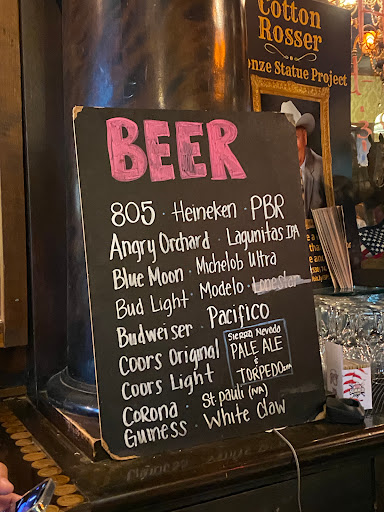 Cotton
Rosser
onze Statue Project
BEER
805 · Heineken · PBR
Angry Orchard · Lagunitas IPA
Blue Moon · Michelob Ultra
Bud Light · Modelo ·
Budweiser · Pacifico
Coors Original
Coors Light ·
Sierra Nevada
PALE ALE
&
TORPEDO
Corona · St pauli (NA)
Guiness · White Claw